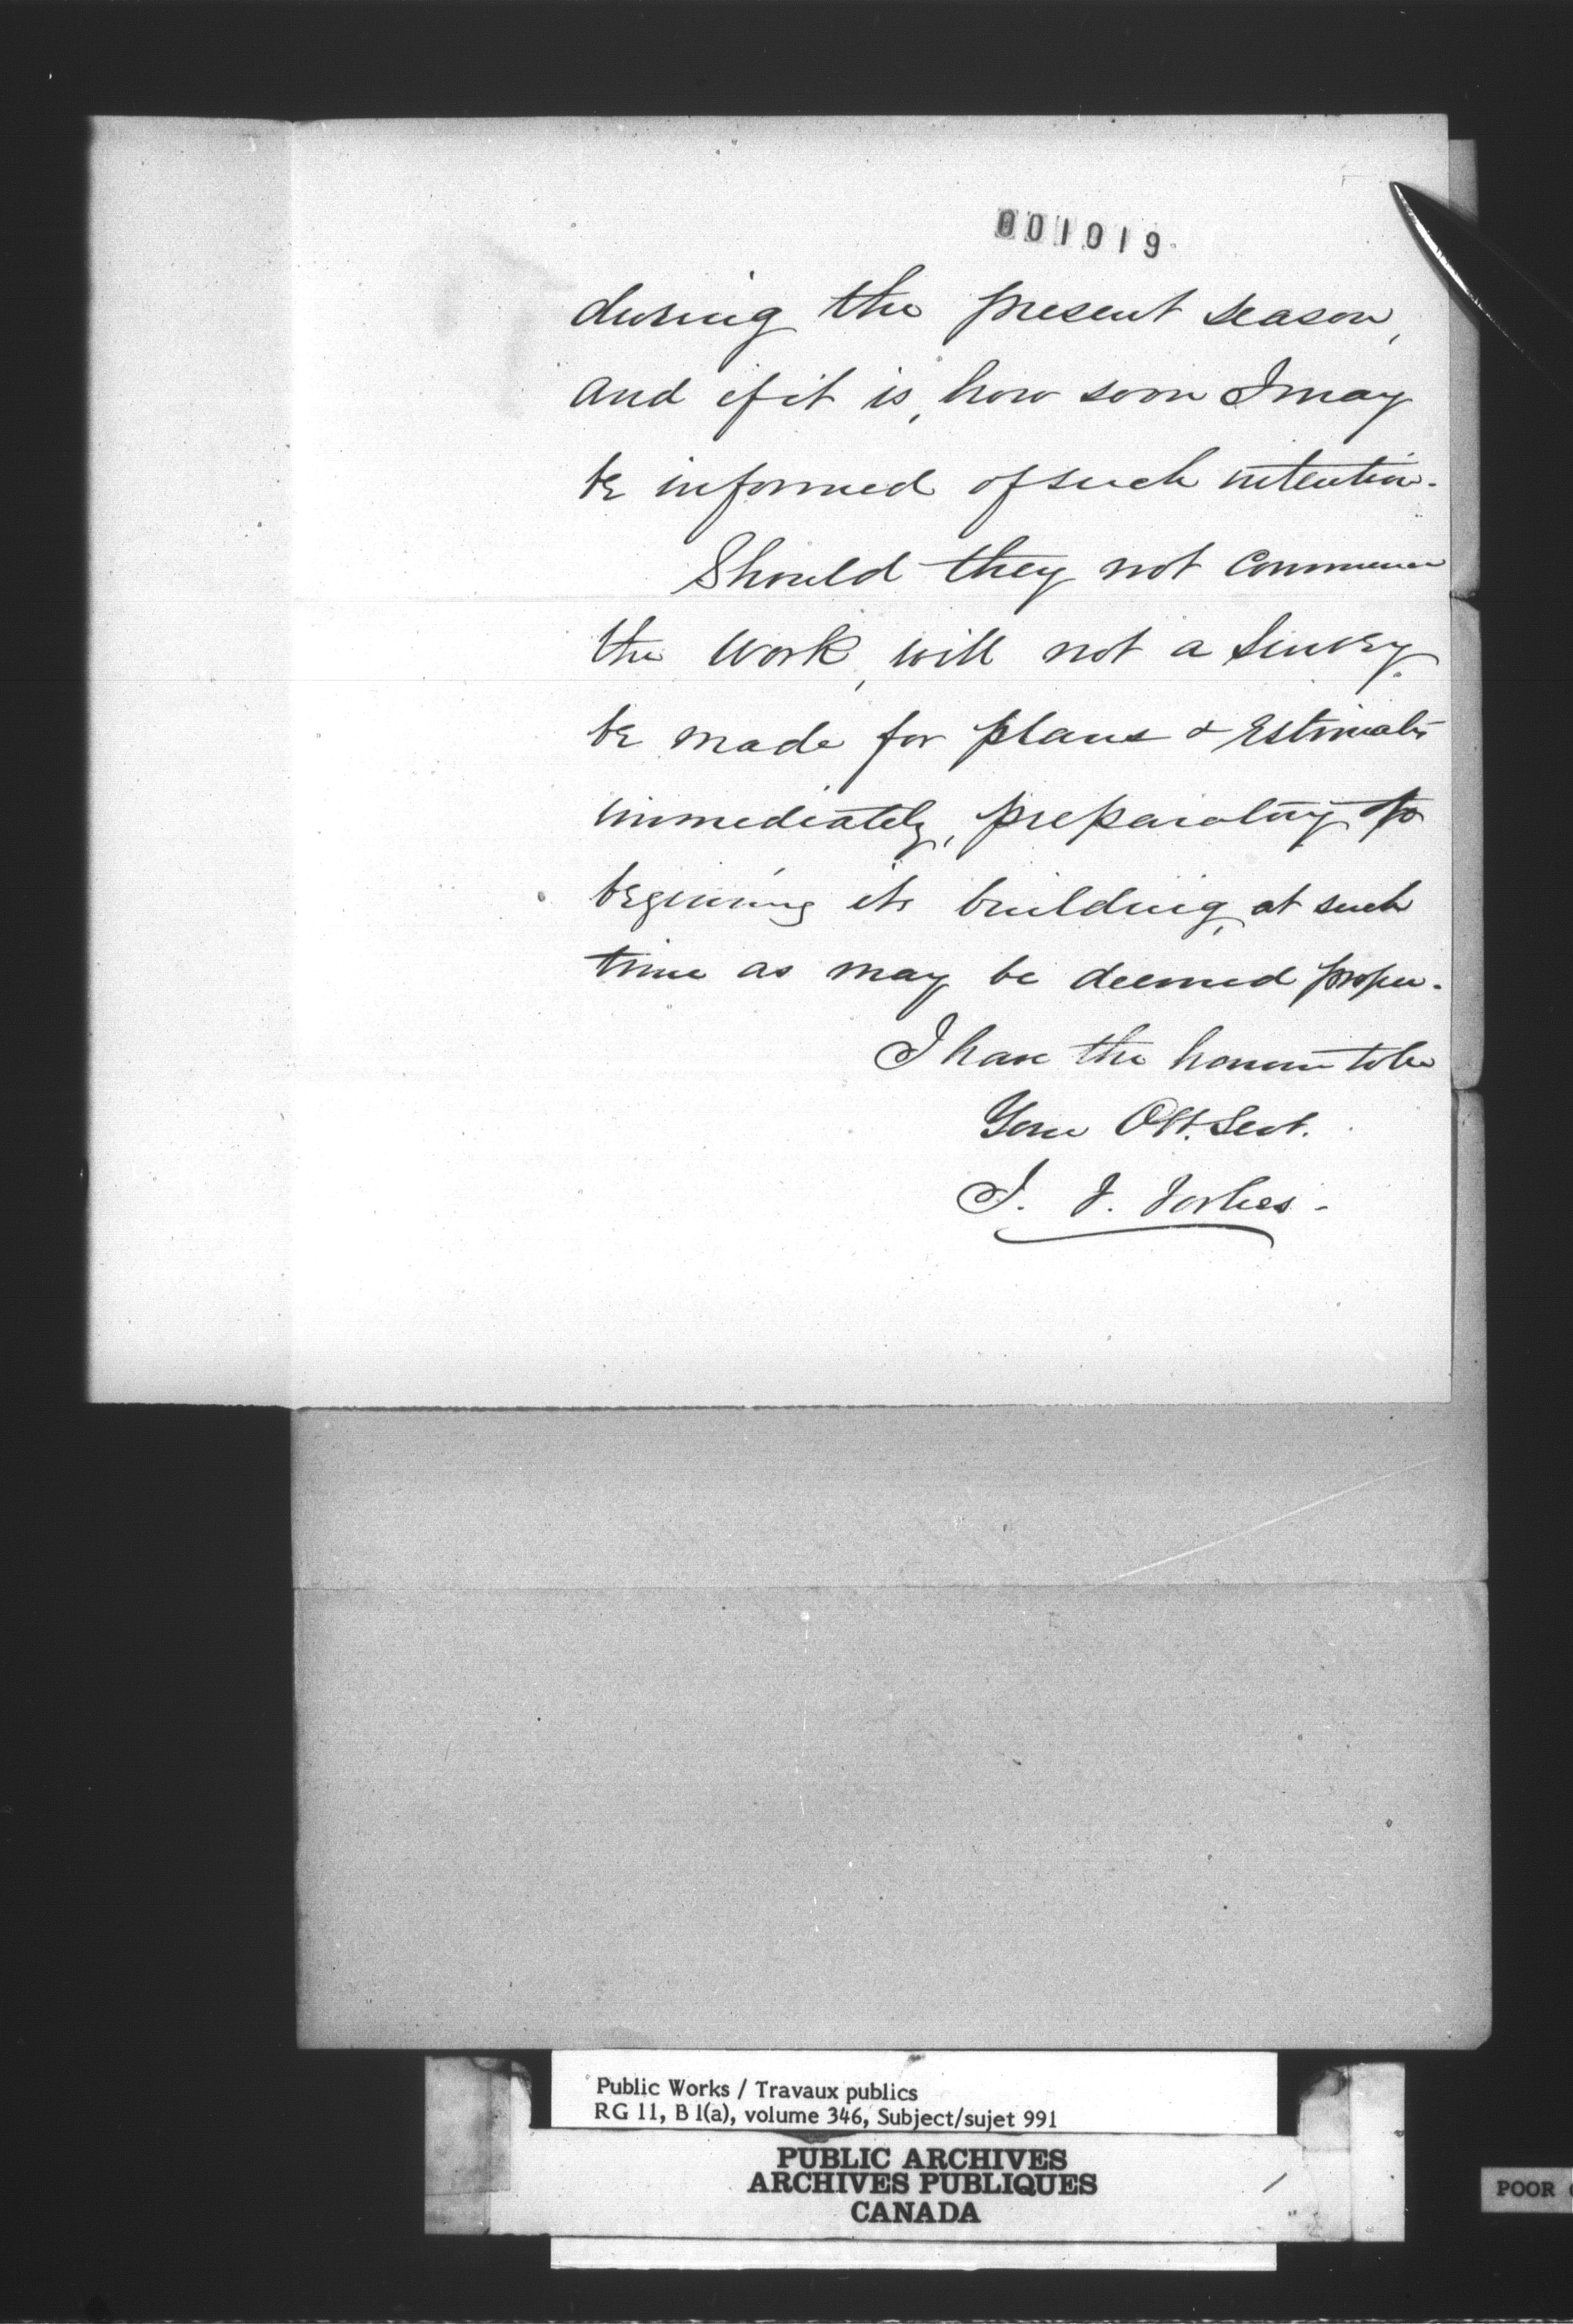 001019
during the present season,
and if it is, how soon I may
be informed of such intention.
Should they not commence
the work, will not a survey
be made for plans & Estimates
immediately, preparatory to
begining its building, at such
time as may be deemed proper.
I have the honour to be
Your Obt. Sevt.
J. F. Forbes.
Public Works / Travaux publics
RG 11, B 1(a), volume 346, Subject/sujet 991
PUBLIC ARCHIVES
ARCHIVES PUBLIQUES
CANADA
POOR